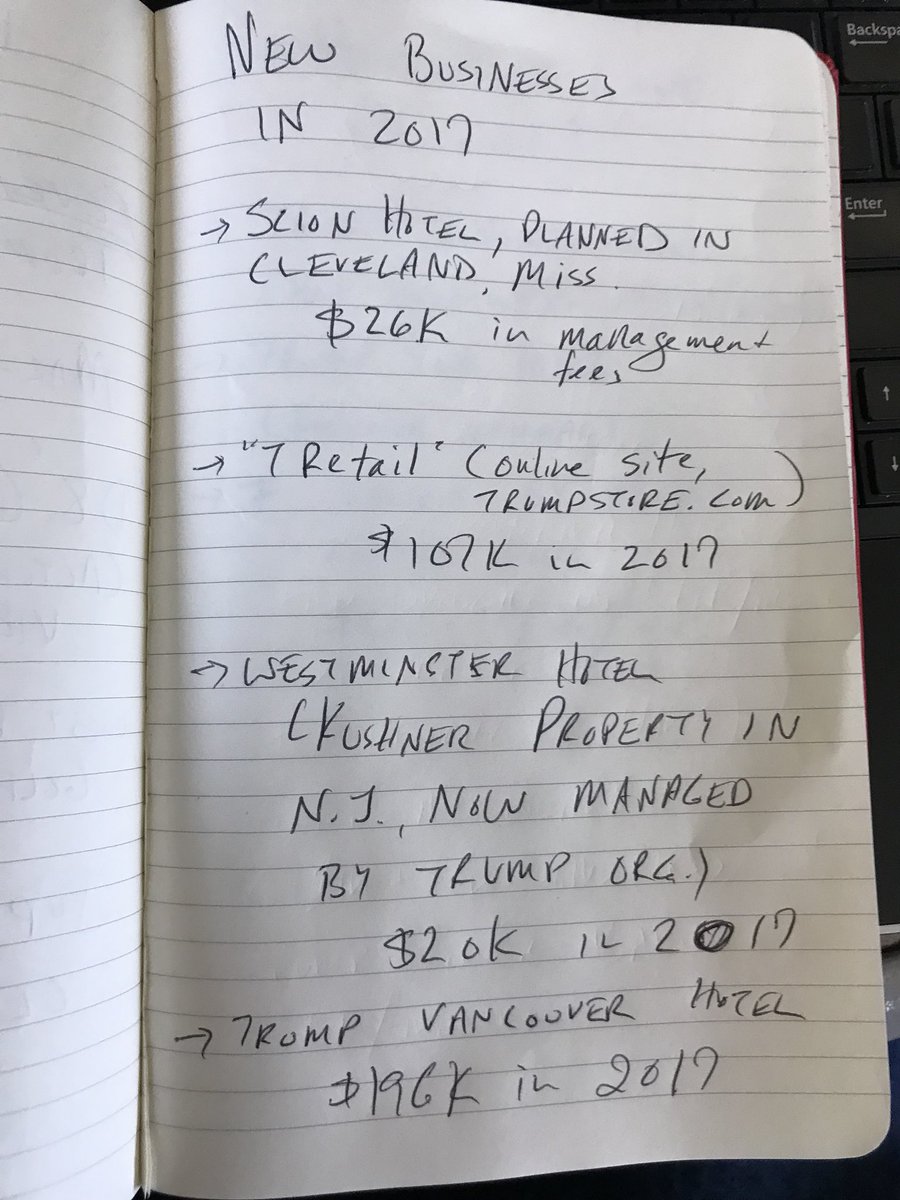 NEW BUSINESSES
IN 2017
→ SCION HOTEL, PLANNED IN
CLEVELAND, MISS.
$26K in management
fees
→ "T Retail" (online site,
TRUMPSTORE.com)
$107K in 2017
→ WESTMINSTER HOTEL
(KUSHNER PROPERTY IN
N.J., NOW MANAGED
BY TRUMP ORG.)
$20K in 2017
→ TRUMP VANCOUVER HOTEL
$196K in 2017
Backspa
Enter